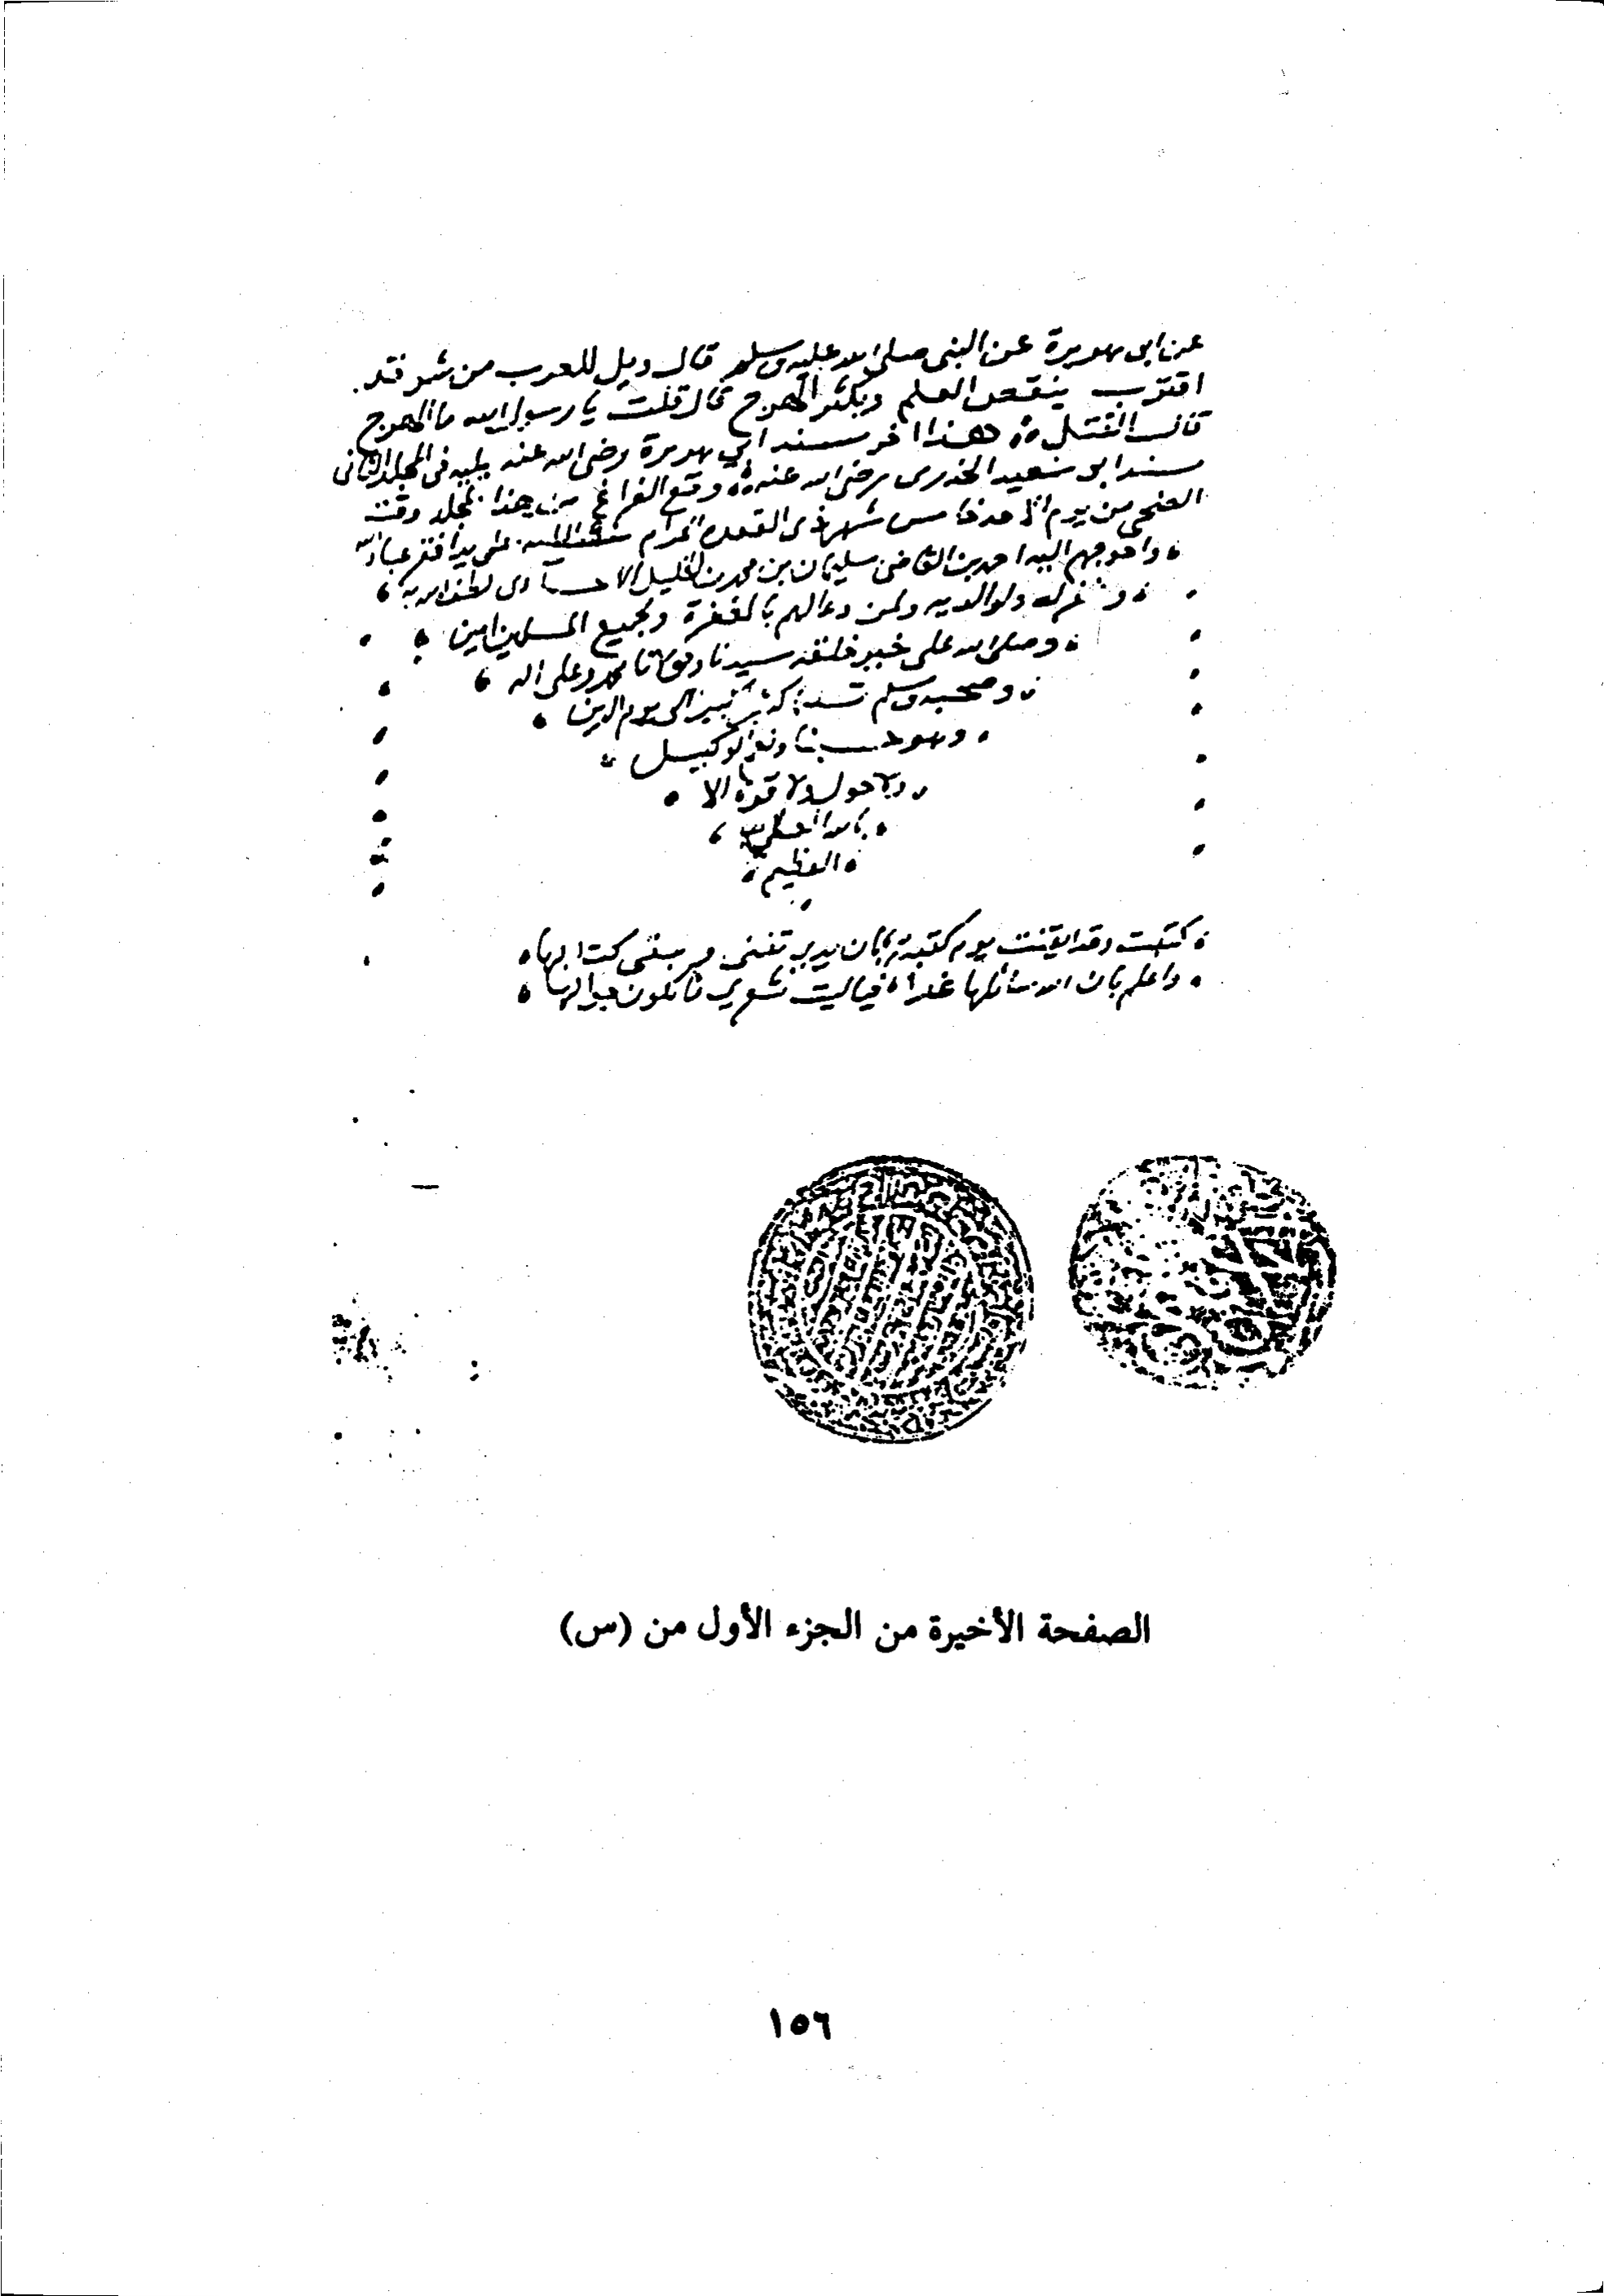 عن ابى هريرة عن النبى صلى الله عليه وسلم قال ويل للعرب من شر قد
اقترب ينقص العلم ويكثر الهرج قال قلت يا رسول الله ما الهرج
قال القتل هذا اخر مسند ابي هريرة رضى الله عنه يليه فى المجلد الثانى
مسند ابو سعيد الخدرى رضى الله عنه وقع الفراغ من هذا المجلد وقت
الضحى من يوم الاحد خامس شهر ذى القعدة الحرام على يد افقر عباد الله
واحوجهم اليه احمد بن القاضى سليمان بن محمد بن الاحسآوى لطف الله به
وغفر له ولوالديه ولمن دعا لهم بالمغفرة ولجميع المسلمين امين
وصلى الله على خير خلقه سيدنا ومولانا محمد وعلى اله
وصحبه وسلم الى يوم الدين
وهو حسبنا ونعم الوكيل
ولا حول ولا قوة الا
بالله العلى
العظيم
كتبت وقد ايقنت يوم كتبته بان يدي تفنى ويبقى كتابها
واعلم بان الله سائلها غدا فياليت شعري ما يكون جوابها
الصفحة الأخيرة من الجزء الأول من (س)
١٥٦